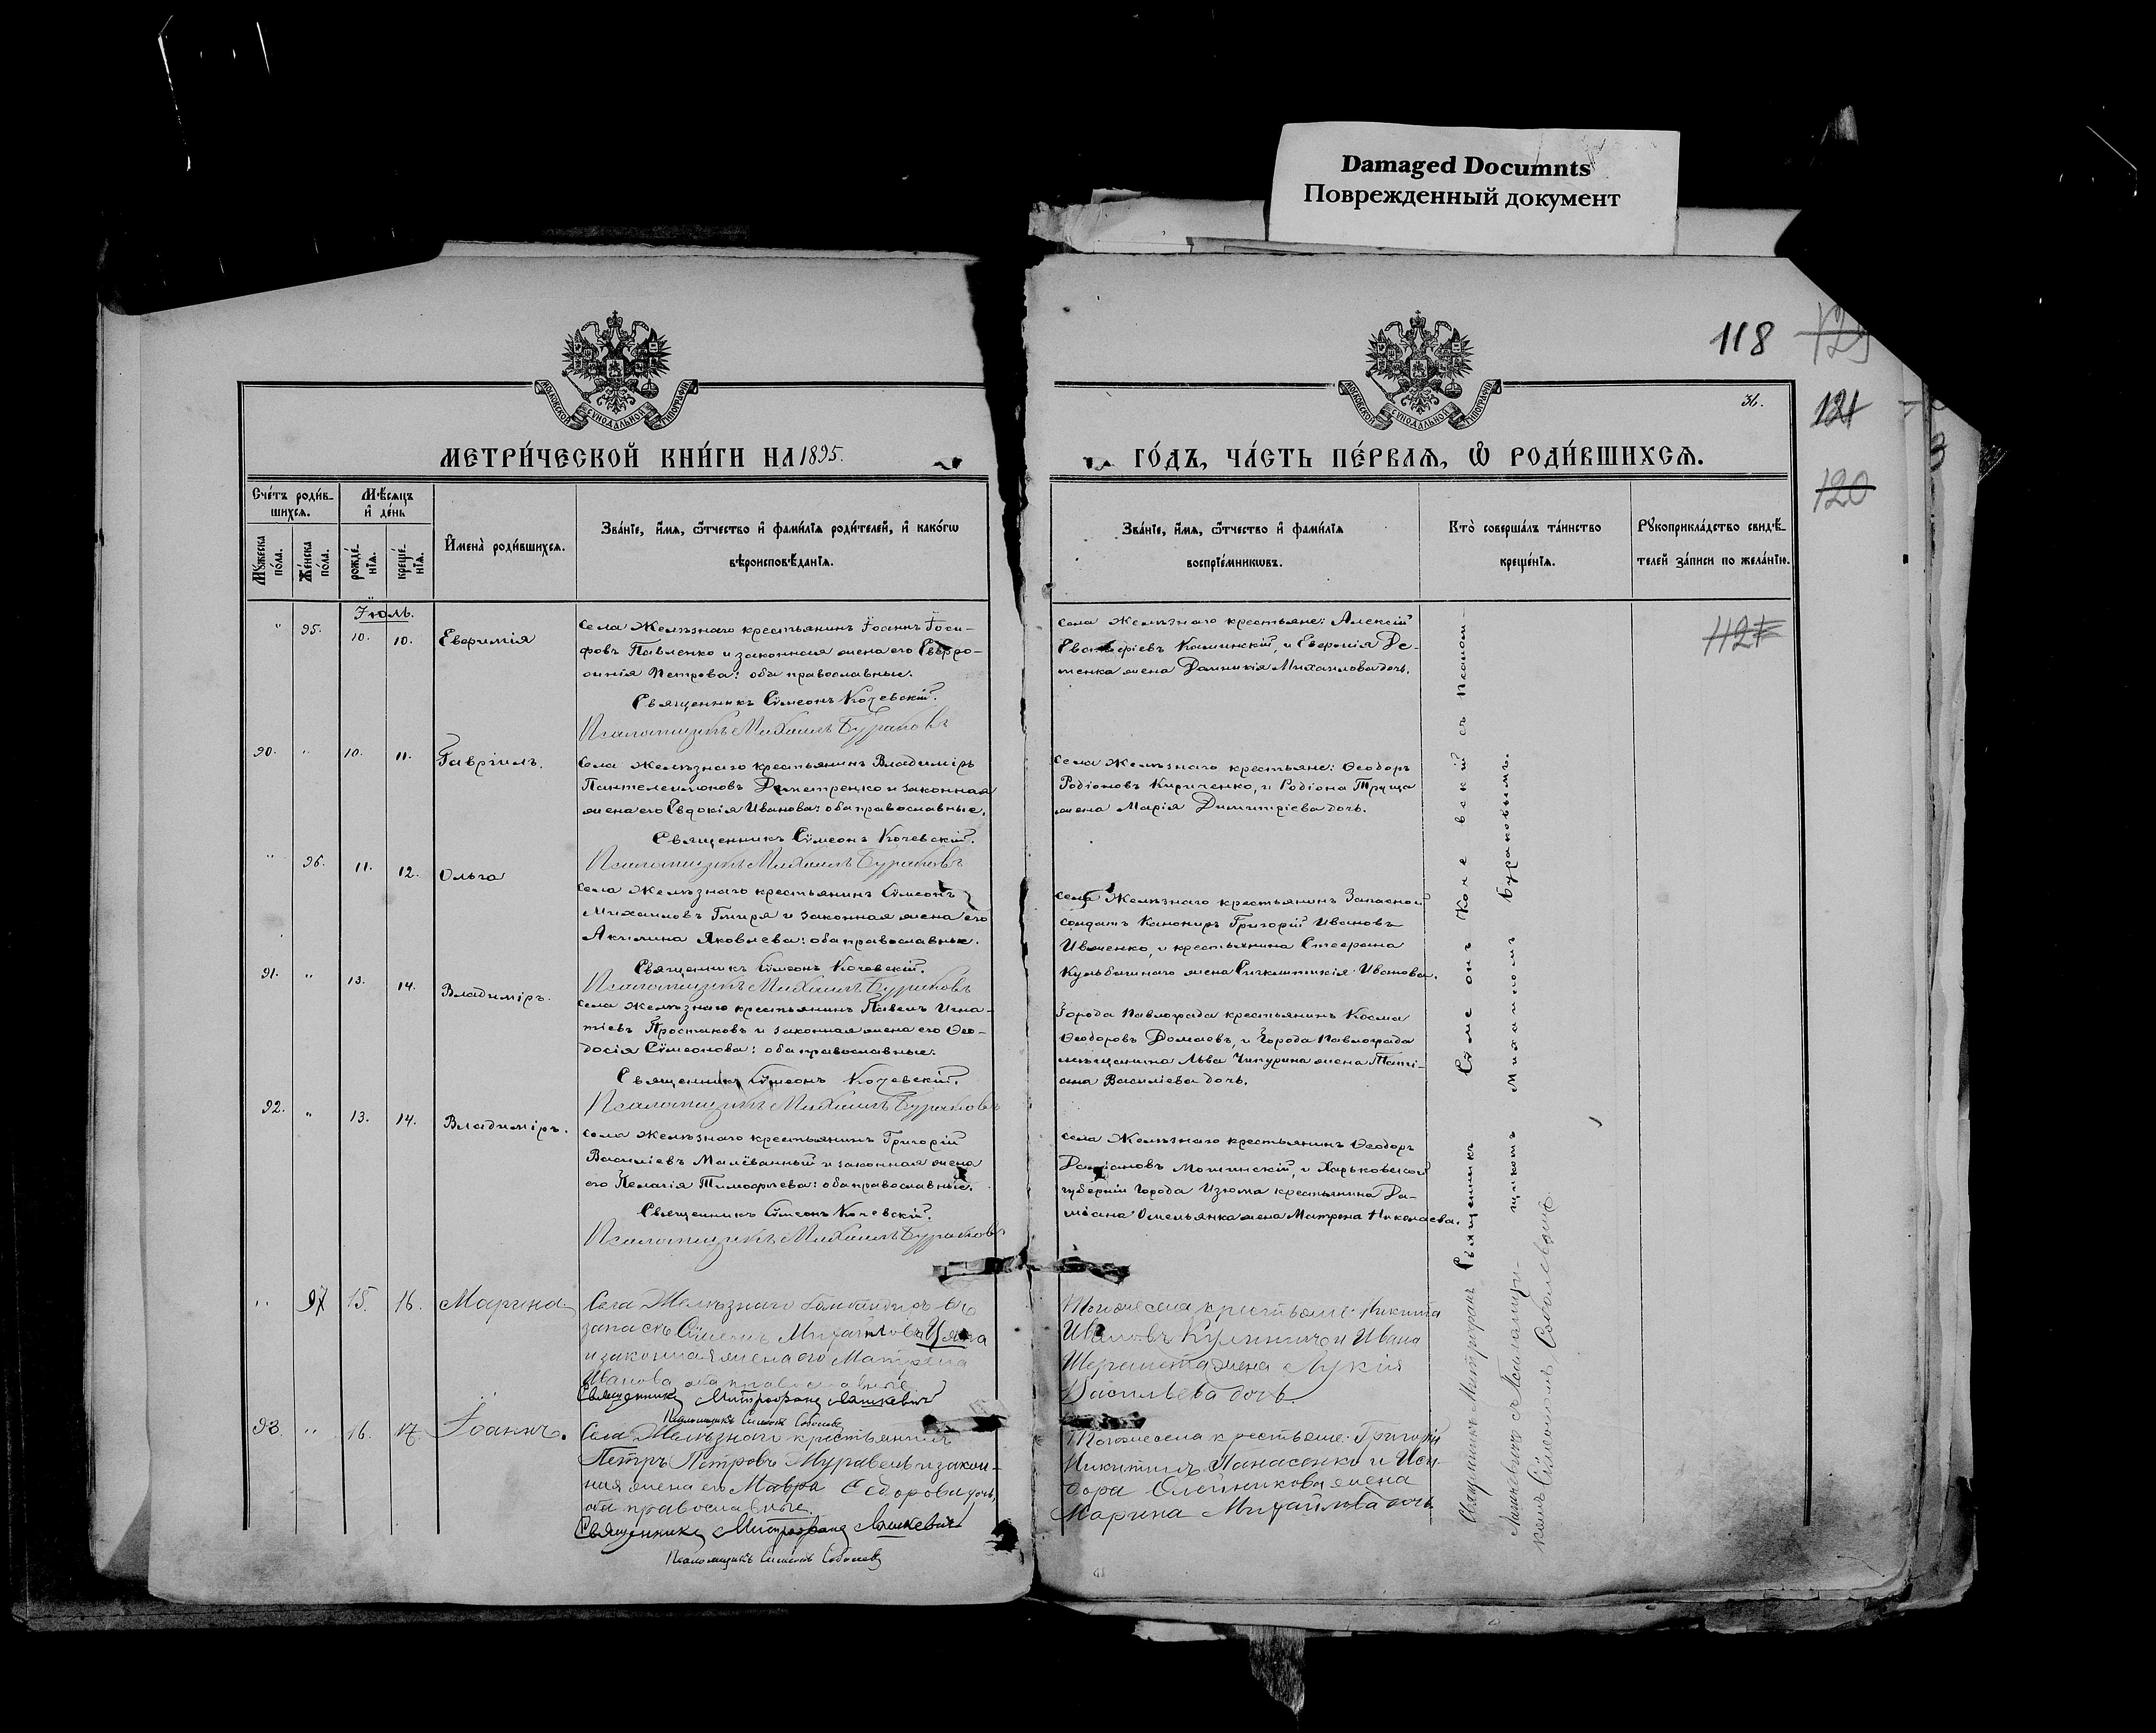 Damaged Documnts
Поврежденный документ
118
125
121
120
31.
МОСКОВСКОЙ СУНОДАЛЬНОЙ ТИПОГРАФІИ
МОСКОВСКОЙ СУНОДАЛЬНОЙ ТИПОГРАФІИ
МЕТРИ́ЧЕСКОЙ КНИ́ГИ НА 1895.
ГО́ДЪ, ЧА́СТЬ ПЕ́РВАѦ, Ѡ РОДИ́ВШИХСѦ.
Сче́тъ роди́в-
шихсѧ.
Мꙋ́жеска по́ла.
Же́нска по́ла.
Мѣ́сѧцъ
и҆ де́нь
рожде́-
нїѧ.
креще́-
нїѧ.
И҆мена̀ роди́вшихсѧ.
Зва́нїе, и҆́мѧ, ѻ҆́тчество и҆ фами́лїѧ роди́телей, и҆ како́гѡ
вѣроисповѣ́данїѧ.
Зва́нїе, и҆́мѧ, ѻ҆́тчество и҆ фами́лїѧ
воспрїе́мникѡвъ.
Кто̀ соверша́лъ та́инство
креще́нїѧ.
Рꙋкоприкла́дство свидѣ́-
телей за́писи по жела́нїю.
Іюль.
" 95. 10. 10. Евфимія
Села Желѣзнаго крестьянинъ Іоаннъ Іоси-
фовъ Павленко и законная жена его Евфро-
синія Петрова: оба православные.
Священникъ Сѵмеонъ Кочевскій.
Псаломщикъ Михаилъ Бураковъ
Села Желѣзнаго крестьяне: Алексій
Евстафіевъ Каминскій, и Евфимія Де-
менка жена Домникія Михаилова дочь.
112
90. " 10. 11. Гавріилъ.
Села Желѣзнаго крестьянинъ Владиміръ
Пантелеимоновъ Дмитренко и законная
жена его Евдокія Иванова: оба православные.
Священникъ Сѵмеонъ Кочевскій.
Псаломщикъ Михаилъ Бураковъ
Села Желѣзнаго крестьяне: Ѳеодоръ
Родіоновъ Кириченко, и Родіона Труша
жена Марія Димитріева дочь.
" 96. 11. 12. Ольга
Села Желѣзнаго крестьянинъ Сѵмеонъ
Михаиловъ Гмиря и законная жена его
Акилина Яковлева: оба православные.
Священникъ Сѵмеонъ Кочевскій.
Псаломщикъ Михаилъ Бураковъ
Села Желѣзнаго крестьянинъ Запасной
солдатъ Канониръ Григорій Ивановъ
Ивженко, и крестьянина Стефана
Кульбашнаго жена Сигклитикія Иванова.
91. " 13. 14. Владиміръ.
Села Желѣзнаго крестьянинъ Павелъ Игна-
тіевъ Простаковъ и законная жена его Ѳео-
досія Сѵмеонова: оба православные.
Священникъ Сѵмеонъ Кочевскій.
Псаломщикъ Михаилъ Бураковъ
Города Павлограда крестьянинъ Косма
Ѳеодоровъ Домаевъ, и Города Павлограда
мѣщанина Льва Чипурина жена Таті-
ана Василіева дочь.
92. " 13. 14. Владиміръ.
Села Желѣзнаго крестьянинъ Григорій
Василіевъ Малёванный и законная жена
его Пелагія Тимофеева: оба православные.
Священникъ Сѵмеонъ Кочевскій.
Псаломщикъ Михаилъ Бураковъ
Села Желѣзнаго крестьянинъ Ѳеодоръ
Даміановъ Мотинскій, и Харьковской
губерніи Города Изюма крестьянина Да-
міана Омельянка жена Матрона Николаева.
Священникъ Сѵмеонъ Кочевскій съ Псалом-
щикомъ Михаиломъ Бураковымъ.
" 97 15. 16. Марина
Села Желѣзнаго въ
запасѣ Сѵмеонъ Михайловъ
и законная жена его Матрена
Иванова оба православные
Священникъ Митрофанъ Ляшкевичъ
Псаломщикъ Симеонъ Соболевъ
Тогоже села крестьяне: Никита
Ивановъ Кулиничъ и Ивана
Шеремета жена Лукія
Васильева дочь.
93. " 16. 17. Іоаннъ.
Села Желѣзнаго крестьянинъ
Петръ Петровъ Муравель и закон-
ная жена его Мавра Ѳедорова дочь,
оба православные.
Священникъ Митрофанъ Ляшкевичъ
Псаломщикъ Симеонъ Соболевъ
Тогоже села крестьяне: Григорій
Никитинъ Панасенко и Иси-
дора Олейникова жена
Марина Михайлова дочь
Священникъ Митрофанъ
Ляшкевичъ съ Псаломщи-
комъ Сѵмеономъ Соболевымъ